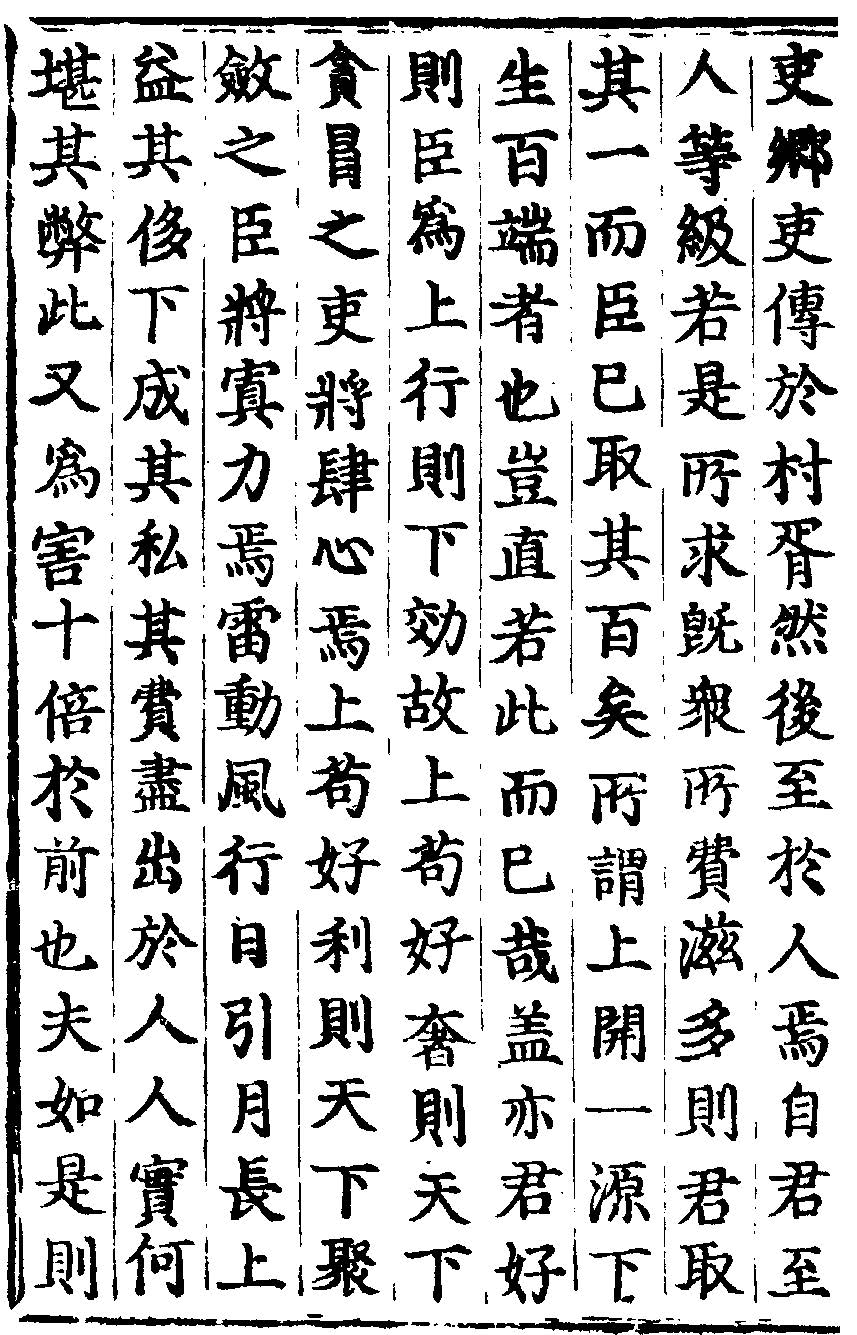 吏鄉吏傳於村胥然後至於人焉自君至
人等級若是所求旣衆所費滋多則君取
其一而臣已取其百矣所謂上開一源下
生百端者也豈直若此而已哉盖亦君好
則臣爲上行則下効故上苟好奢則天下
貪冒之吏將肆心焉上苟好利則天下聚
斂之臣將寘力焉雷動風行日引月長上
益其侈下成其私其費盡出於人人實何
堪其弊此又爲害十倍於前也夫如是則